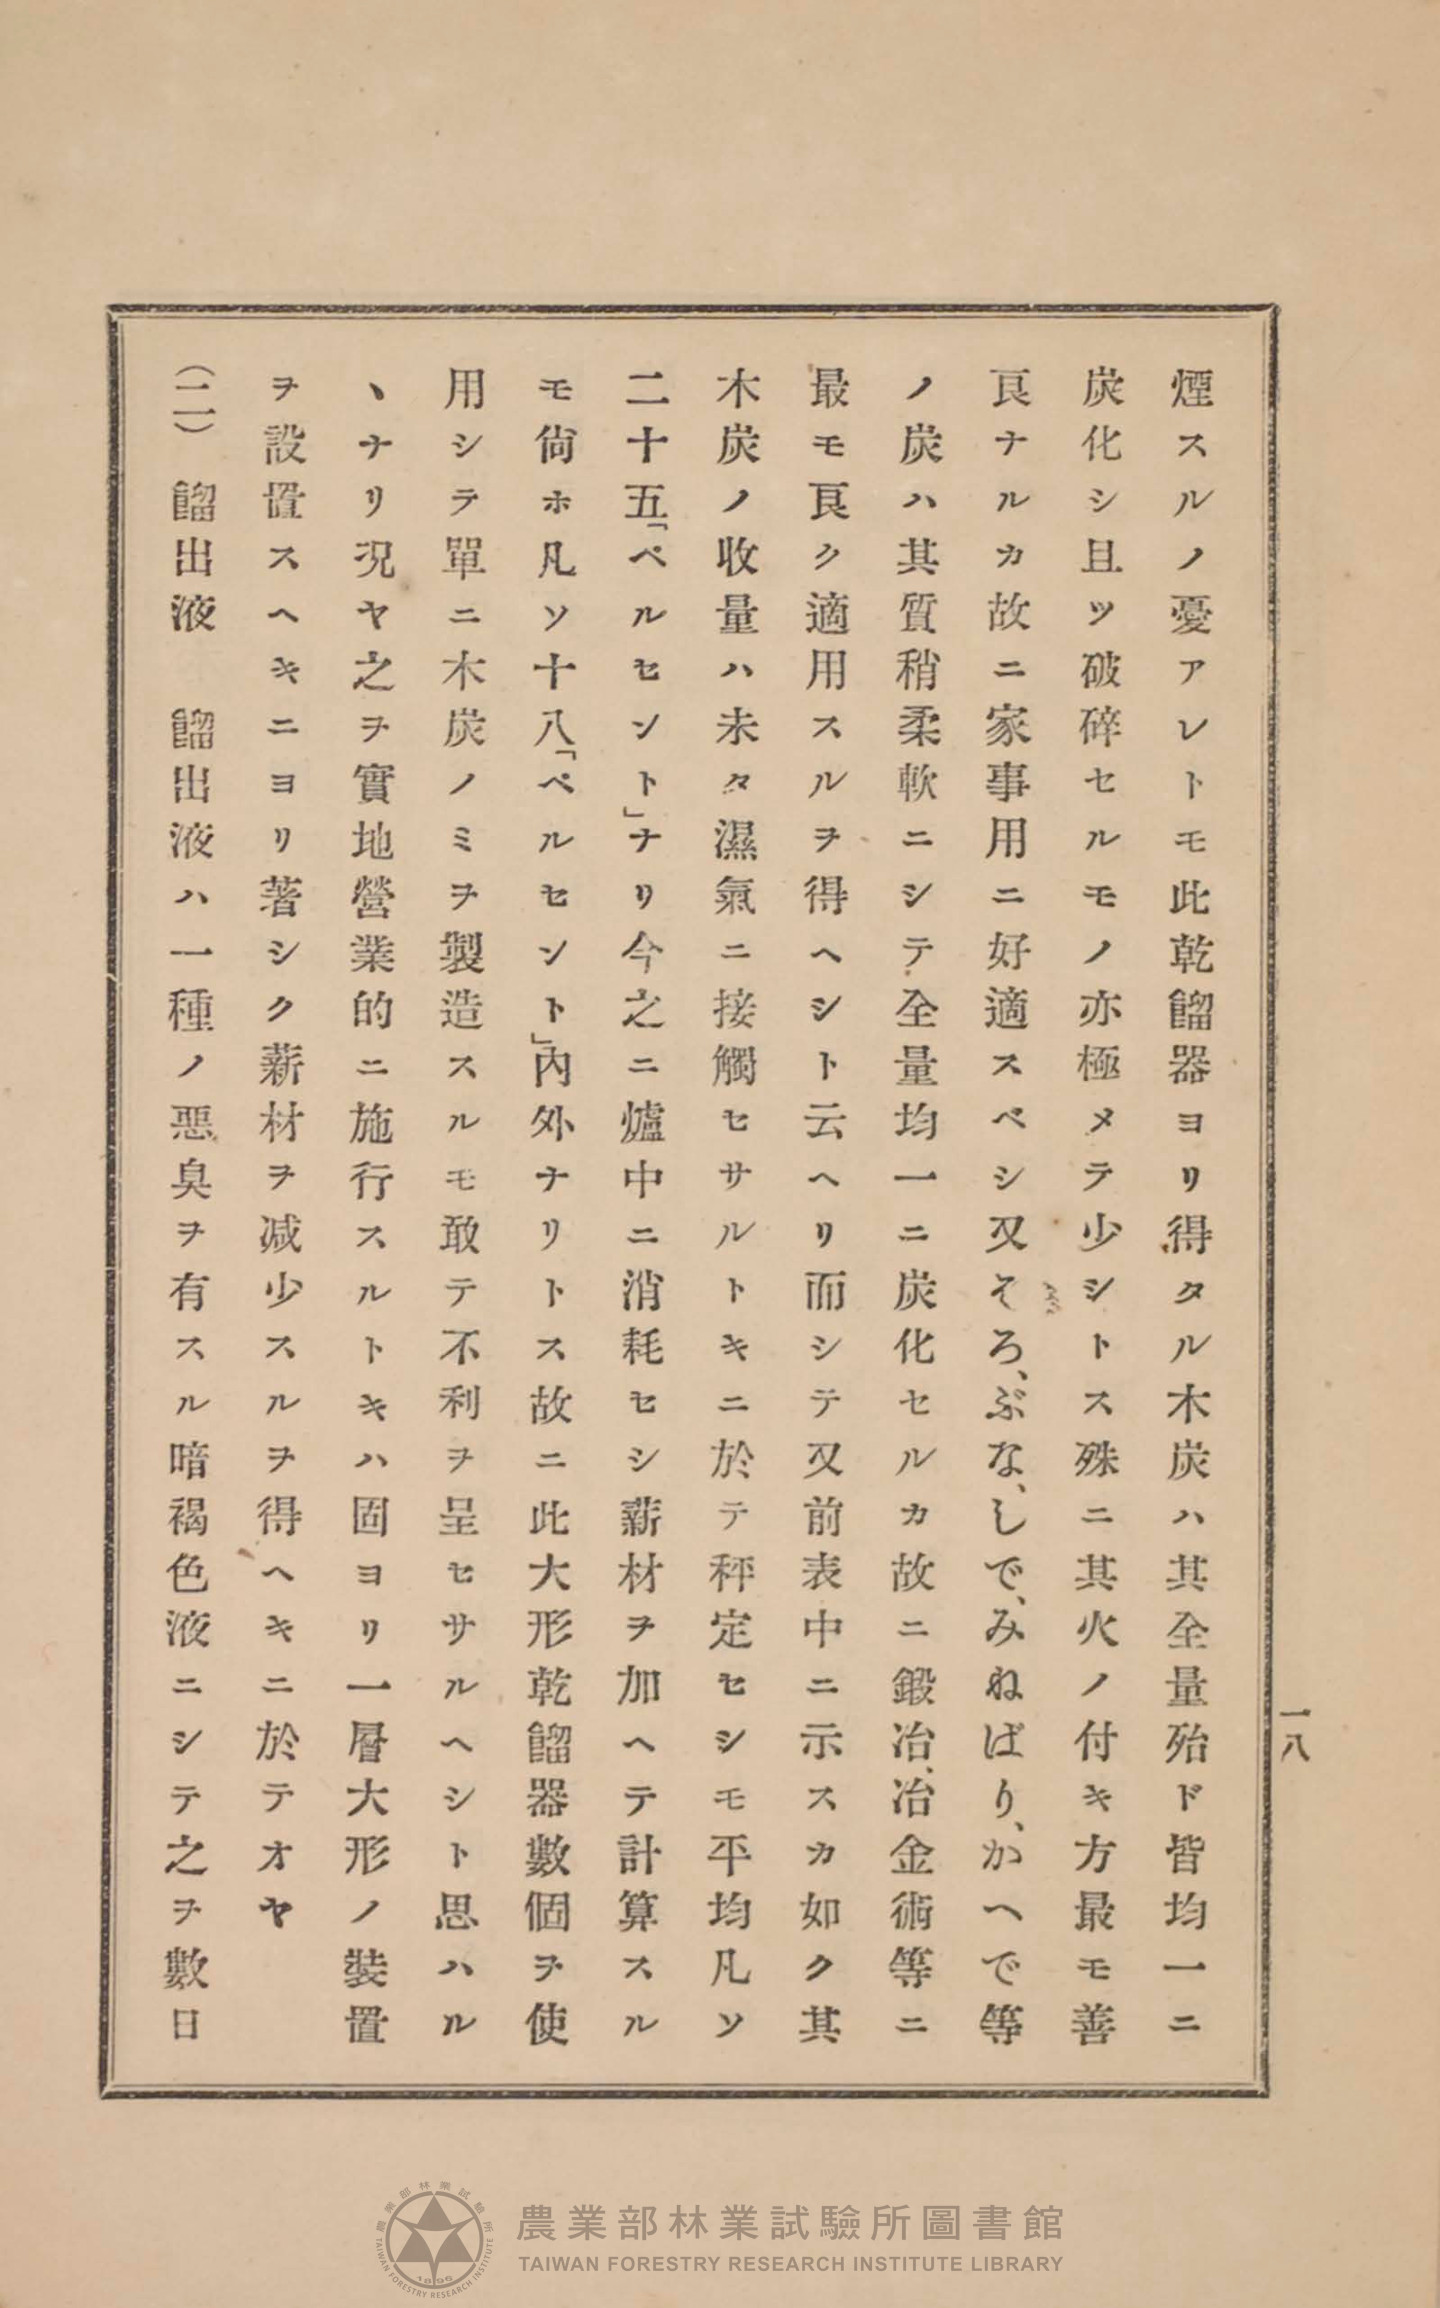 煙スルノ憂アレトモ此乾餾器ヨリ得タル木炭ハ其全量殆ド皆均一ニ
炭化シ且ツ破碎セルモノ亦極メテ少シトス殊ニ其火ノ付キ方最モ善
良ナルカ故ニ家事用ニ好適スベシ又そろ、ぶな、しで、みねばり、かへで等
ノ炭ハ其質稍柔軟ニシテ全量均一ニ炭化セルカ故ニ鍛冶、冶金術等ニ
最モ良ク適用スルヲ得ヘシト云ヘリ而シテ又前表中ニ示スカ如ク其
木炭ノ收量ハ未タ濕氣ニ接觸セサルトキニ於テ秤定セシモ平均凡ソ
二十五「ペルセント」ナリ今之ニ爐中ニ消耗セシ薪材ヲ加ヘテ計算スル
モ尙ホ凡ソ十八「ペルセント」內外ナリトス故ニ此大形乾餾器數個ヲ使
用シテ單ニ木炭ノミヲ製造スルモ敢テ不利ヲ呈セサルヘシト思ハル
ヽナリ況ヤ之ヲ實地營業的ニ施行スルトキハ固ヨリ一層大形ノ裝置
ヲ設置スヘキニヨリ著シク薪材ヲ减少スルヲ得ヘキニ於テオヤ
(二) 餾出液 餾出液ハ一種ノ惡臭ヲ有スル暗褐色液ニシテ之ヲ數日
一八
農業部林業試驗所圖書館
TAIWAN FORESTRY RESEARCH INSTITUTE LIBRARY
農業部林業試驗所
TAIWAN FORESTRY RESEARCH INSTITUTE
1896